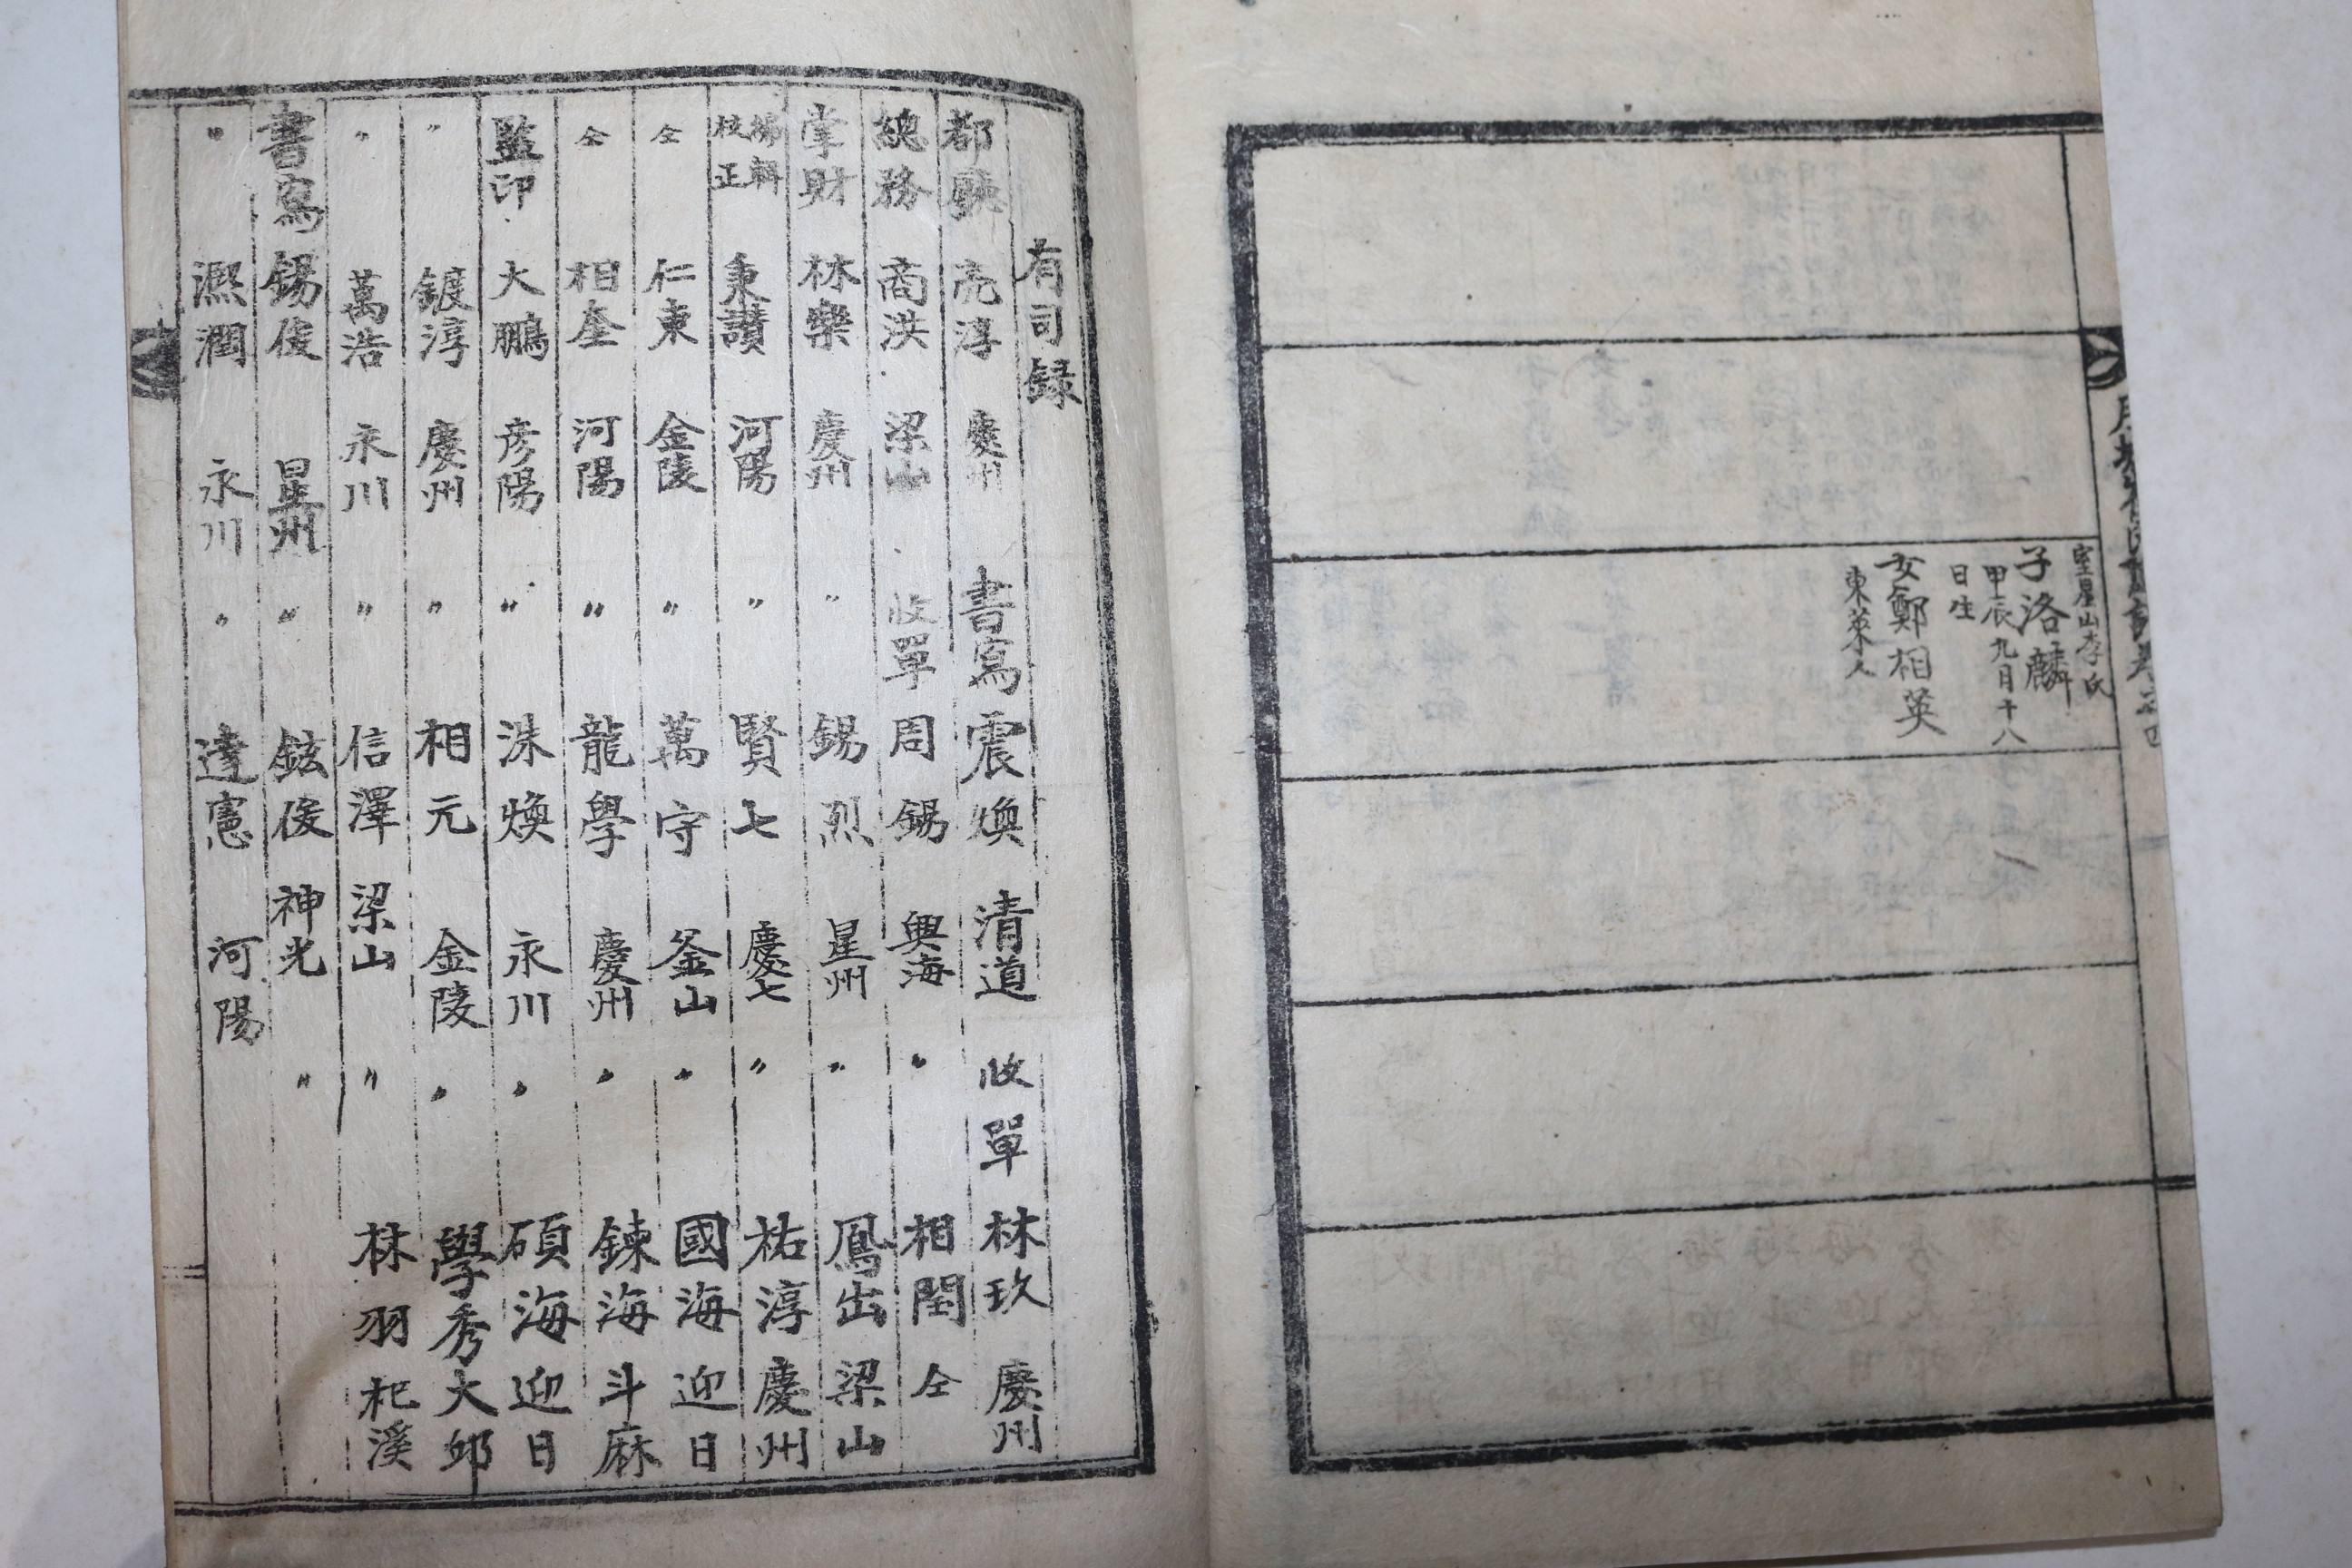 室星山李氏
子洛麟
甲辰九月十八
日生
女鄭相英
東萊人
有司錄
都廳 亮淳 慶州 書寫 震煥 清道 收單 林玖 慶州
總務 商洪 梁山 收單 周錫 興海 〃 相閏 仝
掌財 林樂 慶州 〃 錫烈 星州 〃 鳳出 梁山
編輯校正 秉讚 河陽 〃 賢七 慶七 〃 祐淳 慶州
仝 仁東 金陵 〃 萬守 釜山 〃 國海 迎日
仝 相奎 河陽 〃 龍學 慶州 〃 鍊海 斗麻
監印 大鵬 彦陽 〃 洙煥 永川 〃 碩海 迎日
〃 鍍淳 慶州 〃 相元 金陵 〃 學秀 大邱
〃 萬浩 永川 〃 信澤 梁山 〃 林羽 杞溪
書寫 錫俊 星州 〃 鉉俊 神光 〃
〃 凞潤 永川 〃 達憲 河陽